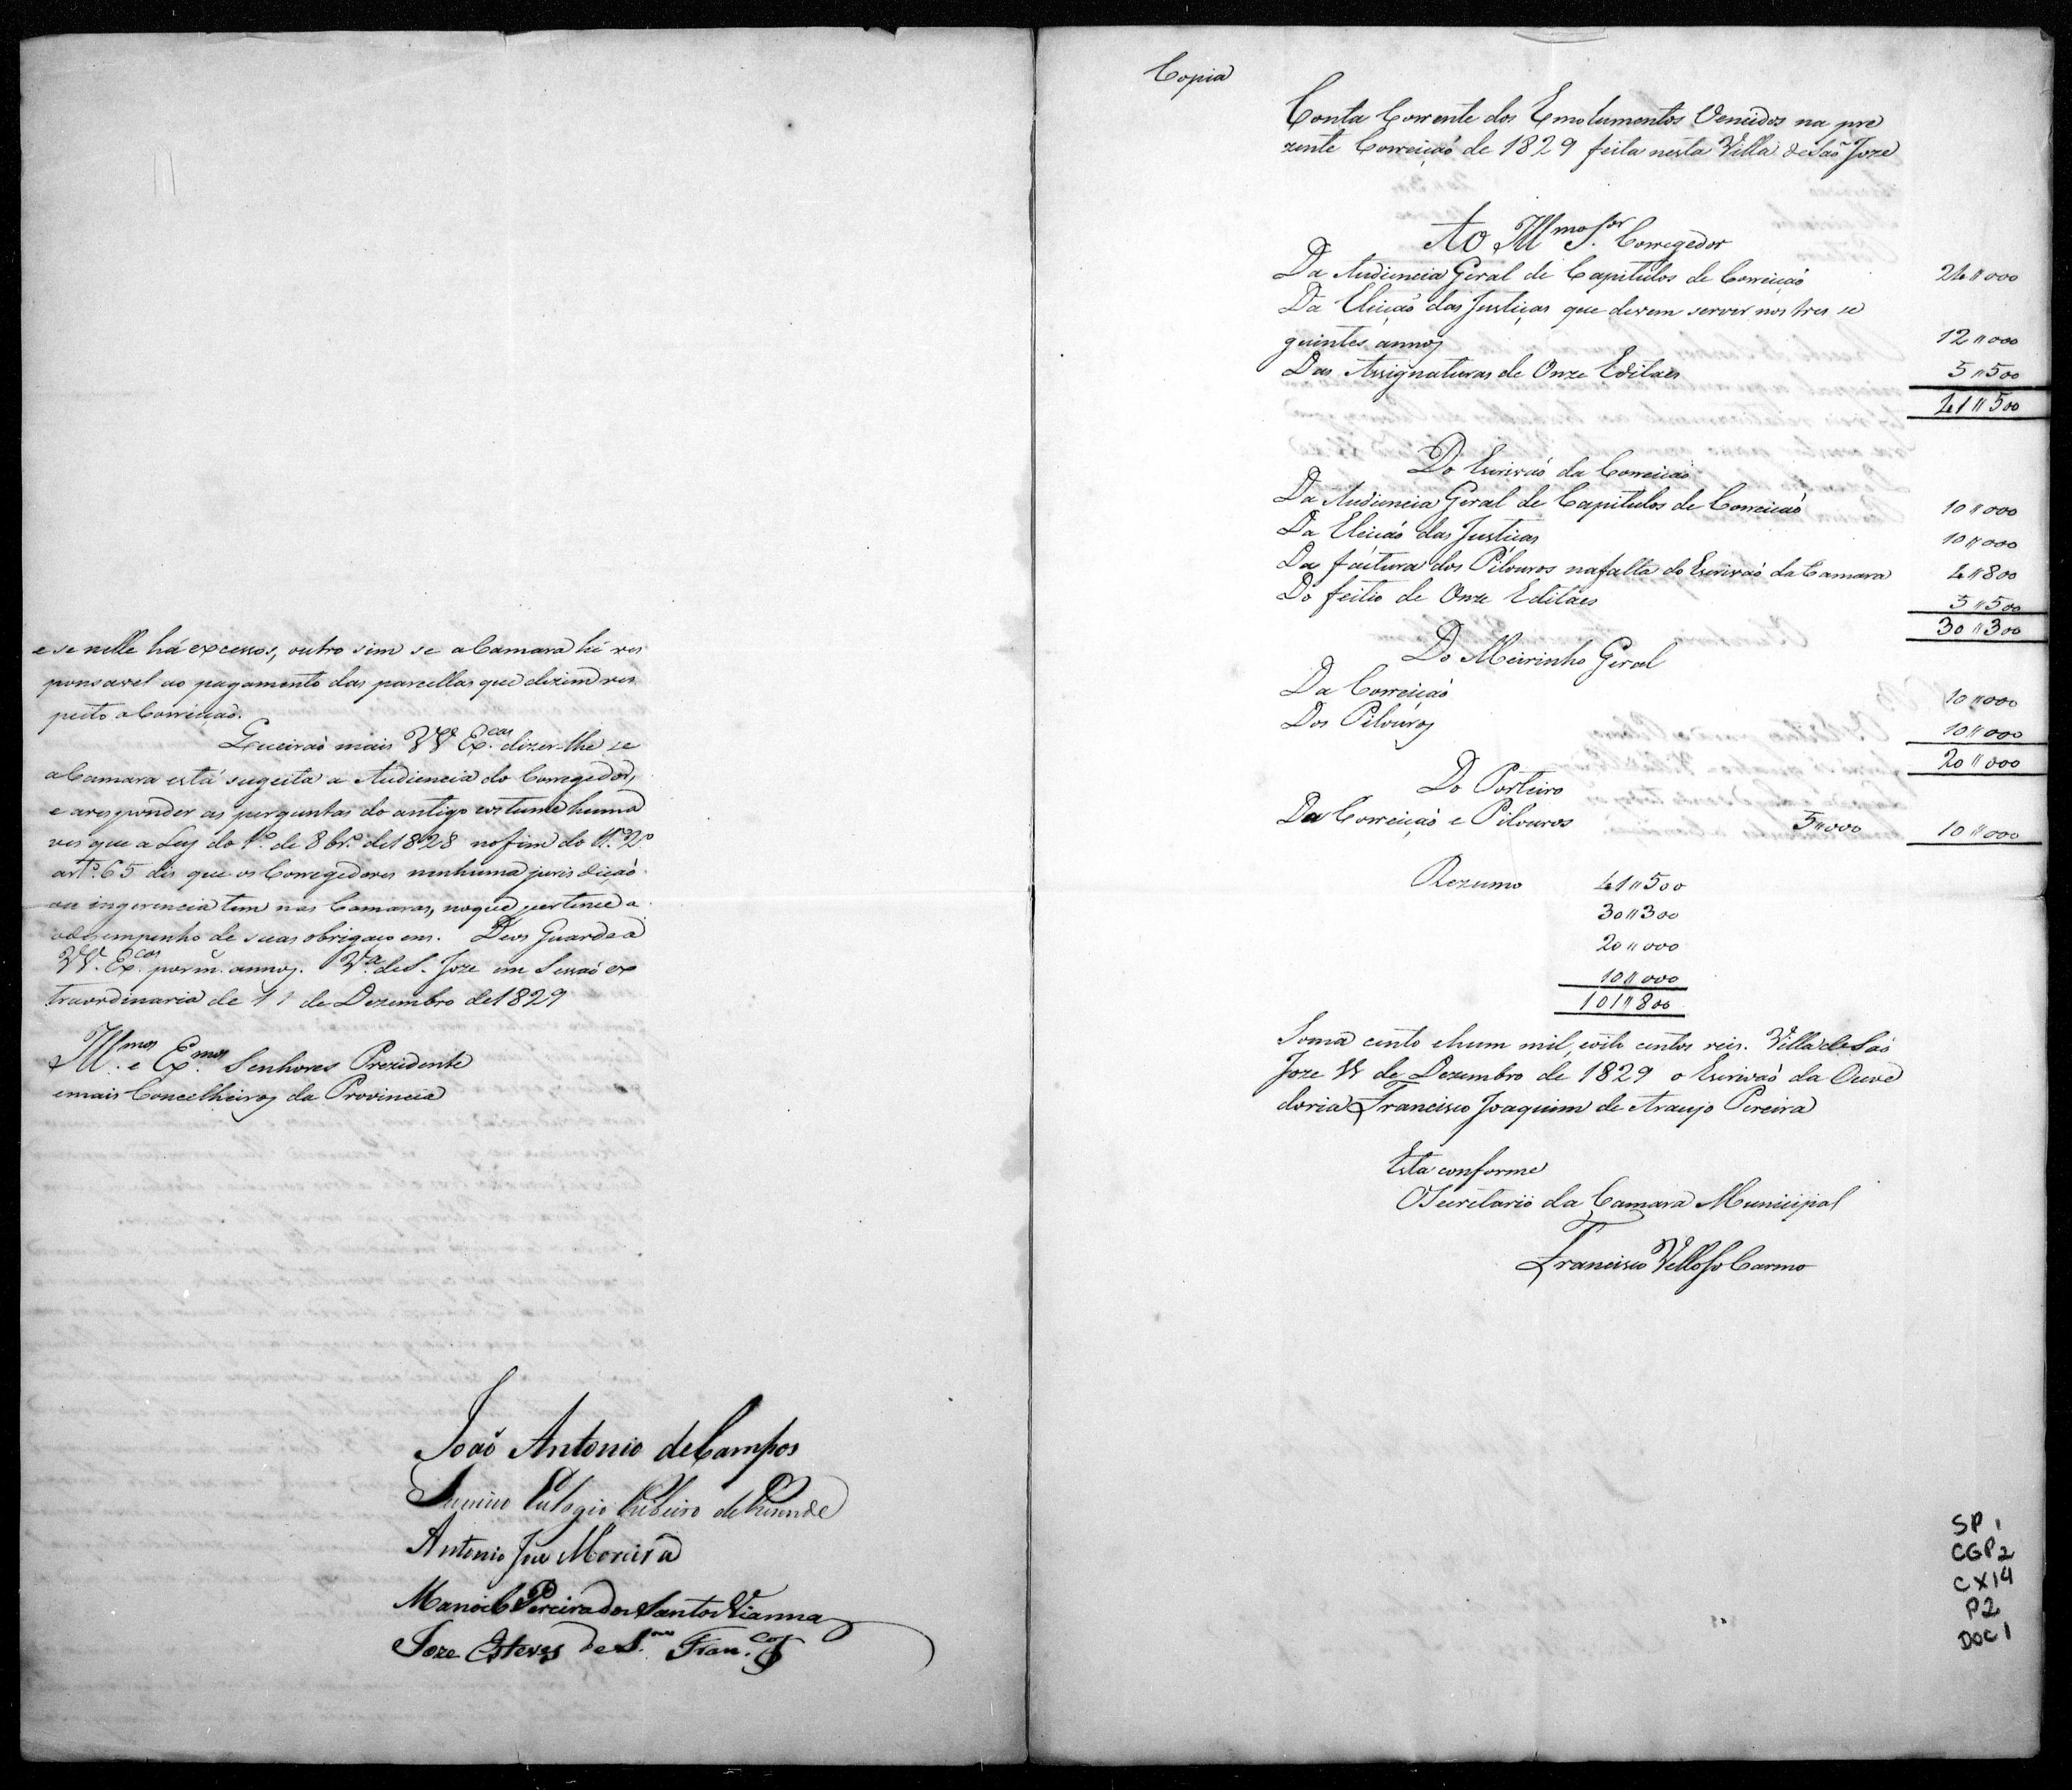 e se nelle há excessos, outro sim se a Camara hé res
ponsavel ao pagamento das parcellas que dizem res
peito a Correiçaõ.
Queiraõ mais VV. Ex.cas dizer-lhe se
a Camara está sugeita a Audiencia do Corregedor,
e a responder as perguntas do antigo costume huma
ves que a Ley do 1.º de 8br.º de 1828 no fim do
art.º 65 dis que os Corregedores nenhuma jurisdiçaõ
ou ingerencia tem nas Camaras, no que pertence a
o desempenho de suas obrigaçoens. Deos Guarde a
VV. Ex.cas por m. annos. V.a de S. Joze em Sessaõ ex
traordinaria de 11 de Dezembro de 1829
Ill.mos e Ex.mos Senhores Prezidente
e mais Concelheiros da Provincia
Joaõ Antonio de Campos
Eulogio Ribeiro de Rezende
Antonio Joze Moreira
Manoel Pereira dos Santos Vianna
Joze Esteves de Fran.co
Copia
Conta Corrente dos Emolumentos Vencidos na pre
zente Correiçaõ de 1829 feita nesta Villa de Saõ Joze
Ao Ill.mo S.or Corregedor
Da Audiencia Geral de Capitulos de Correiçaõ 24"000
Da Eleiçaõ das Justiças que devem servir nos tres se
guintes annos 12"000
Das Assignaturas de Onze Editaes 5"500
41"500
Do Escrivaõ da Correiçaõ
Da Audiencia Geral de Capitulos de Correiçaõ 10"000
Da Eleiçaõ das Justicas 10"000
Da faitura dos Pilouros na falta do Escrivaõ da Camara 4"800
Do feitio de Onze Editaes 5"500
30"300
Do Meirinho Geral
Da Correiçaõ 10"000
Dos Pilouros 10"000
20"000
Do Porteiro
Da Correiçaõ e Pilouros 5"000 10"000
Rezumo 41"500
30"300
20"000
10"000
101"800
Soma cento e hum mil, oito centos reis. Villa de Saõ
Joze 11 de Dezembro de 1829 o Escrivaõ da Ouve
doria Francisco Joaquim de Araujo Pereira
Esta conforme
O Secretario da Camara Municipal
Francisco Velloso Carmo
SP 1
CGP2
CX14
P2
DOC1